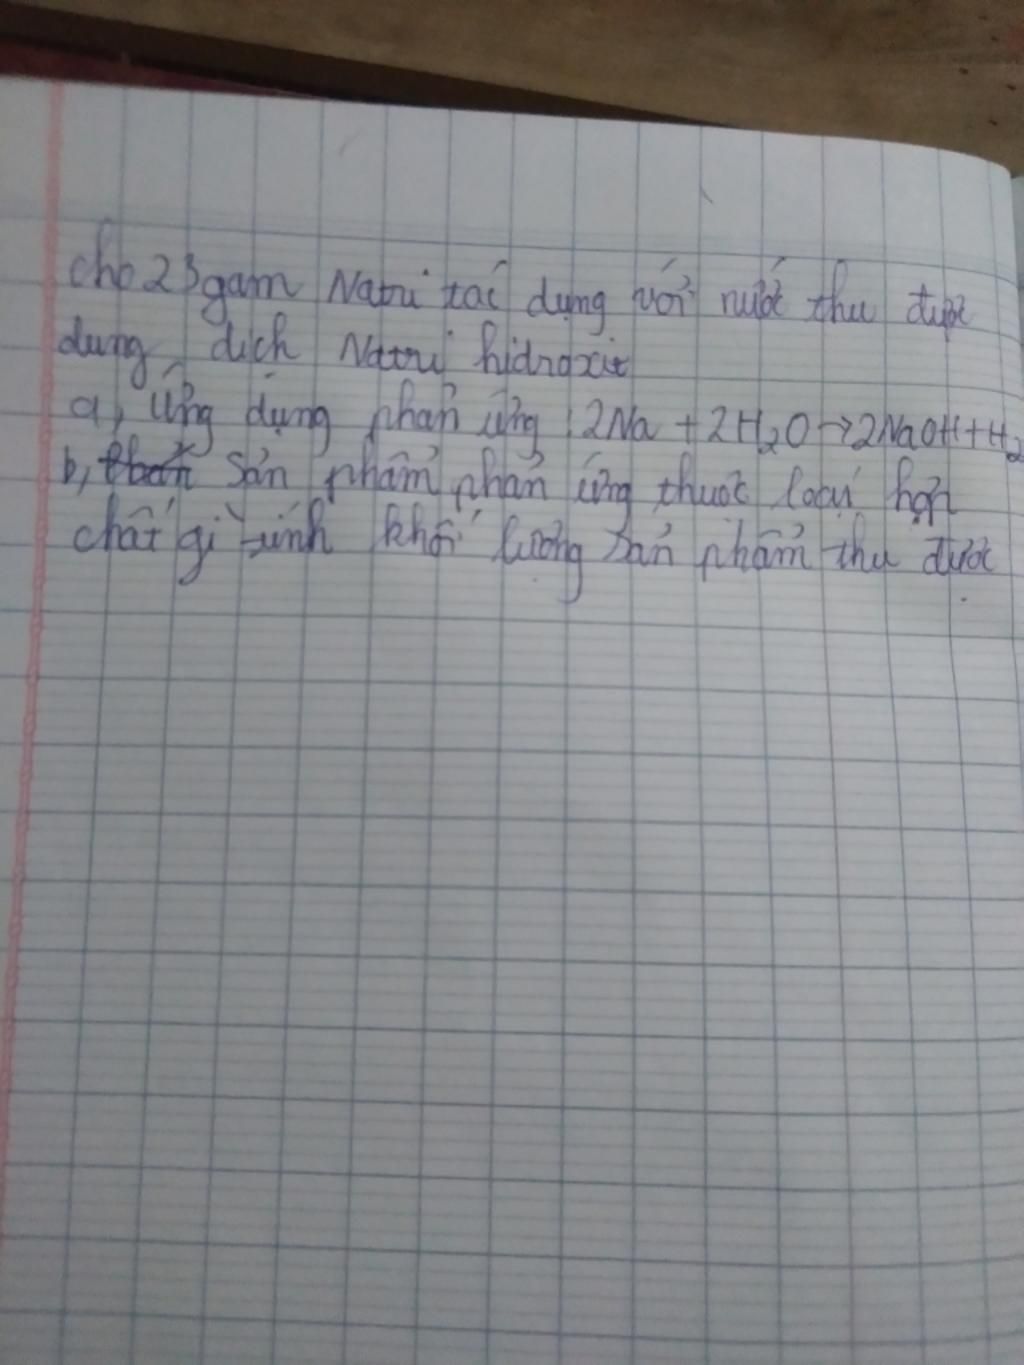 cho 23 gam Natri tác dụng với nước thu được
dung dịch Natri hidroxit
a, Ứng dụng phản ứng : 2Na + 2H₂O → 2NaOH + H₂
b, Sản phẩm phản ứng thuộc loại hợp
chất gì tính khối lượng sản phẩm thu được